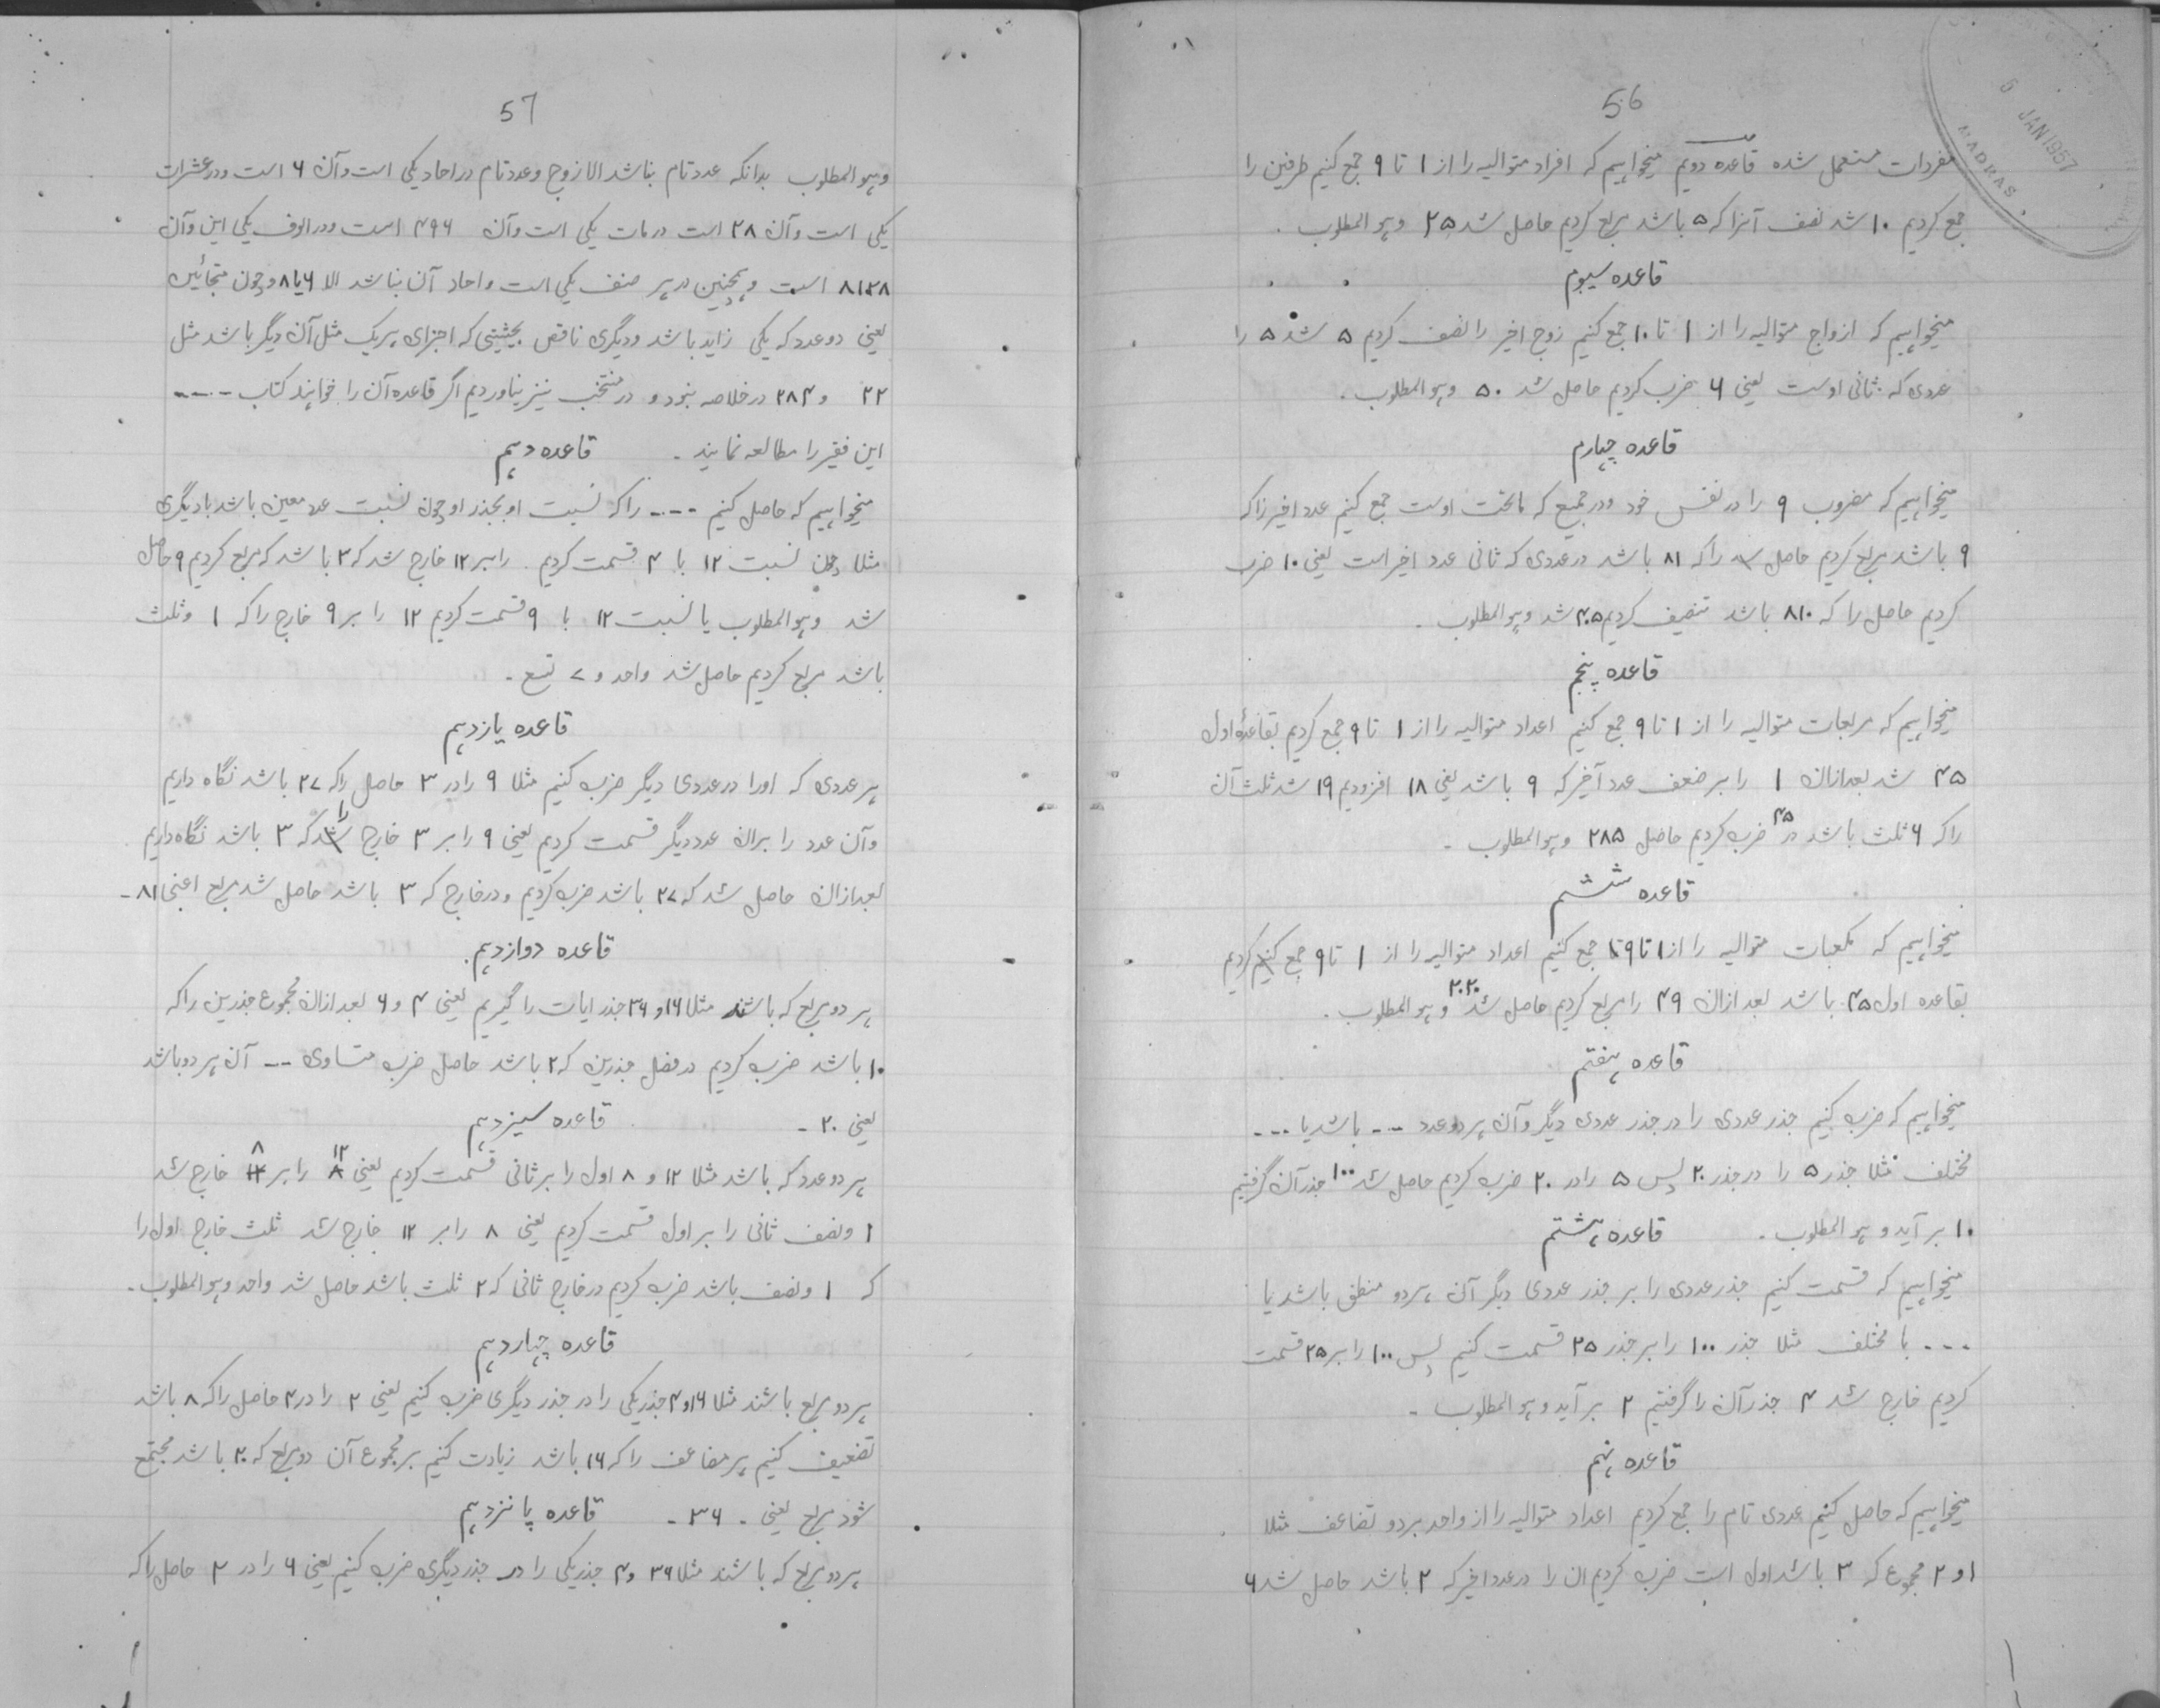 56
مفردات مستعمل شده قاعده دویم میخواہیم که افراد متوالیه را از ۱ تا ۹ جمع کنیم طرفین را
جمع کردیم ۱۰ شد نصف آنرا که ۵ باشد مربع کردیم حاصل شد ۲۵ وہو المطلوب ۔
قاعده سیوم
میخواہیم که ازواج متوالیه را از ۱ تا ۱۰ جمع کنیم زوج اخیر را نصف کردیم ۵ شد ۵ را
عددی که ثانی اوست یعنی ۶ ضرب کردیم حاصل شد ۵۰ وہو المطلوب ۔
قاعده چہارم
میخواہیم که مضروب ۹ را در نفس خود و در جمیع که ماتحت اوست جمع کنیم عدد اخیر را که
۹ باشد مربع کردیم حاصل را که ۸۱ باشد در عددی که ثانی عدد اخیر است یعنی ۱۰ ضرب
کردیم حاصل را که ۸۱۰ باشد تنصیف کردیم ۴۰۵ شد وہو المطلوب ۔
قاعده پنجم
میخواہیم که مربعات متوالیه را از ۱ تا ۹ جمع کنیم اعداد متوالیه را از ۱ تا ۹ جمع کردیم بقاعدۂ اول
۴۵ شد بعد ازان ۱ را بر ضعف عدد آخیر که ۹ باشد یعنی ۱۸ افزودیم ۱۹ شد ثلث آن
را که ۶ ثلث باشد در ۴۵ ضرب کردیم حاصل ۲۸۵ وہو المطلوب ۔
قاعده ششم
میخواہیم که مکعبات متوالیه را از ۱ تا ۹ جمع کنیم اعداد متوالیه را از ۱ تا ۹ جمع کردیم
بقاعده اول ۴۵ باشد بعد ازان ۴۹ را مربع کردیم حاصل شد ۲۰۲۰ وہو المطلوب ۔
قاعده ہفتم
میخواہیم که ضرب کنیم جذر عددی را در جذر عددی دیگر و آن ہر دو عدد --- باشد یا ---
مختلف مثلا جذر ۵ را در جذر ۲۰ پس ۵ را در ۲۰ ضرب کردیم حاصل شد ۱۰۰ جذر آن گرفتیم
۱۰ بر آید وہو المطلوب ۔ قاعده ہشتم
میخواہیم که قسمت کنیم جذر عددی را بر جذر عددی دیگر آن ہر دو منطق باشد یا
--- یا مختلف مثلا جذر ۱۰۰ را بر جذر ۲۵ قسمت کنیم پس ۱۰۰ را بر ۲۵ قسمت
کردیم خارج شد ۴ جذر آن را گرفتیم ۲ بر آید وہو المطلوب ۔
قاعده نہم
میخواہیم که حاصل کنیم عددی تام را جمع کردیم اعداد متوالیه را از واحد بر دو تضاعف مثلا
۱ و ۲ مجموع که ۳ باشد اول است ضرب کردیم ان را در عدد اخیر که ۲ باشد حاصل شد ۶
57
وہو المطلوب بدانکه عدد تام نباشد الا زوج و عدد تام در احاد یکی است و آن ۶ است و در عشرات
یکی است و آن ۲۸ است در مات یکی است و آن ۴۹۶ است و در الوف یکی این و آن
۸۱۲۸ است و ہمچنین در ہر صنف یکی است و احاد آن نباشد الا ۶ یا ۸ و چون متحابین
یعنی دو عدد که یکی زاید باشد و دیگری ناقص بحیثیتی که اجزای ہر یک مثل آن دیگر باشد مثل
۲۲ و ۲۸۴ در خلاصه نبود و در منتخب نیز نیاوردیم اگر قاعده آن را خواہند کتاب ----
این فقیر را مطالعه نمایند ۔ قاعده دہم
میخواہیم که حاصل کنیم ---- را که نسبت او بجذر او چون نسبت عدد معین باشد با دیگری
مثلا چون نسبت ۱۲ با ۴ قسمت کردیم را بر ۱۲ خارج شد که ۳ باشد که مربع کردیم ۹ حاصل
شد وہو المطلوب یا نسبت ۱۲ با ۹ قسمت کردیم ۱۲ را بر ۹ خارج را که ۱ و ثلث
باشد مربع کردیم حاصل شد واحد و ۷ تسع ۔
قاعده یازدہم
ہر عددی که اورا در عددی دیگر ضرب کنیم مثلا ۹ را در ۳ حاصل را که ۲۷ باشد نگاه داریم
و آن عدد را بر ان عدد دیگر قسمت کردیم یعنی ۹ را بر ۳ خارج را که ۳ باشد نگاه داریم
بعد ازان حاصل شد که ۲۷ باشد ضرب کردیم و در خارج که ۳ باشد حاصل شد مربع اعنی ۸۱ ۔
قاعده دوازدہم ۔
ہر دو مربع که باشند مثلا ۱۶ و ۳۶ جذر ایات را گیریم یعنی ۴ و ۶ بعد ازان مجموع جذرین را که
۱۰ باشد ضرب کردیم در فضل جذرین که ۲ باشد حاصل ضرب متساوی -- آن ہر دو باشد
یعنی ۲۰ ۔ قاعده سیزدہم
ہر دو عدد که باشد مثلا ۱۲ و ۸ اول را بر ثانی قسمت کردیم یعنی ۱۲ را بر ۸ خارج شد
۱ و نصف ثانی را بر اول قسمت کردیم یعنی ۸ را بر ۱۲ خارج شد ثلث خارج اول را
که ۱ و نصف باشد ضرب کردیم در خارج ثانی که ۲ ثلث باشد حاصل شد واحد وہو المطلوب ۔
قاعده چہاردہم
ہر دو مربع باشند مثلا ۱۶ و ۴ جذر یکی را در جذر دیگری ضرب کنیم یعنی ۲ را در ۴ حاصل را که ۸ باشد
تضعیف کنیم ہر مضاعف را که ۱۶ باشد زیادت کنیم بر مجموع آن دو مربع که ۲۰ باشد مجتمع
شود مربع یعنی ۔ ۳۶ ۔ قاعده پانزدہم
ہر دو مربع که باشند مثلا ۳۶ و ۴ جذر یکی را در جذر دیگری ضرب کنیم یعنی ۶ را در ۲ حاصل را که
6 JAN 1957
MADRAS